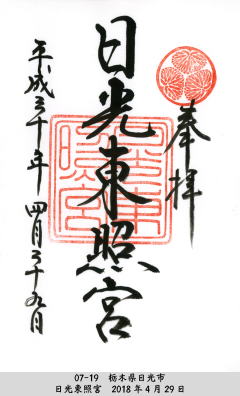 奉拝
日光東照宮
平成三十年 四月二十九日
07-19　栃木県日光市
日光東照宮　2018年4月29日